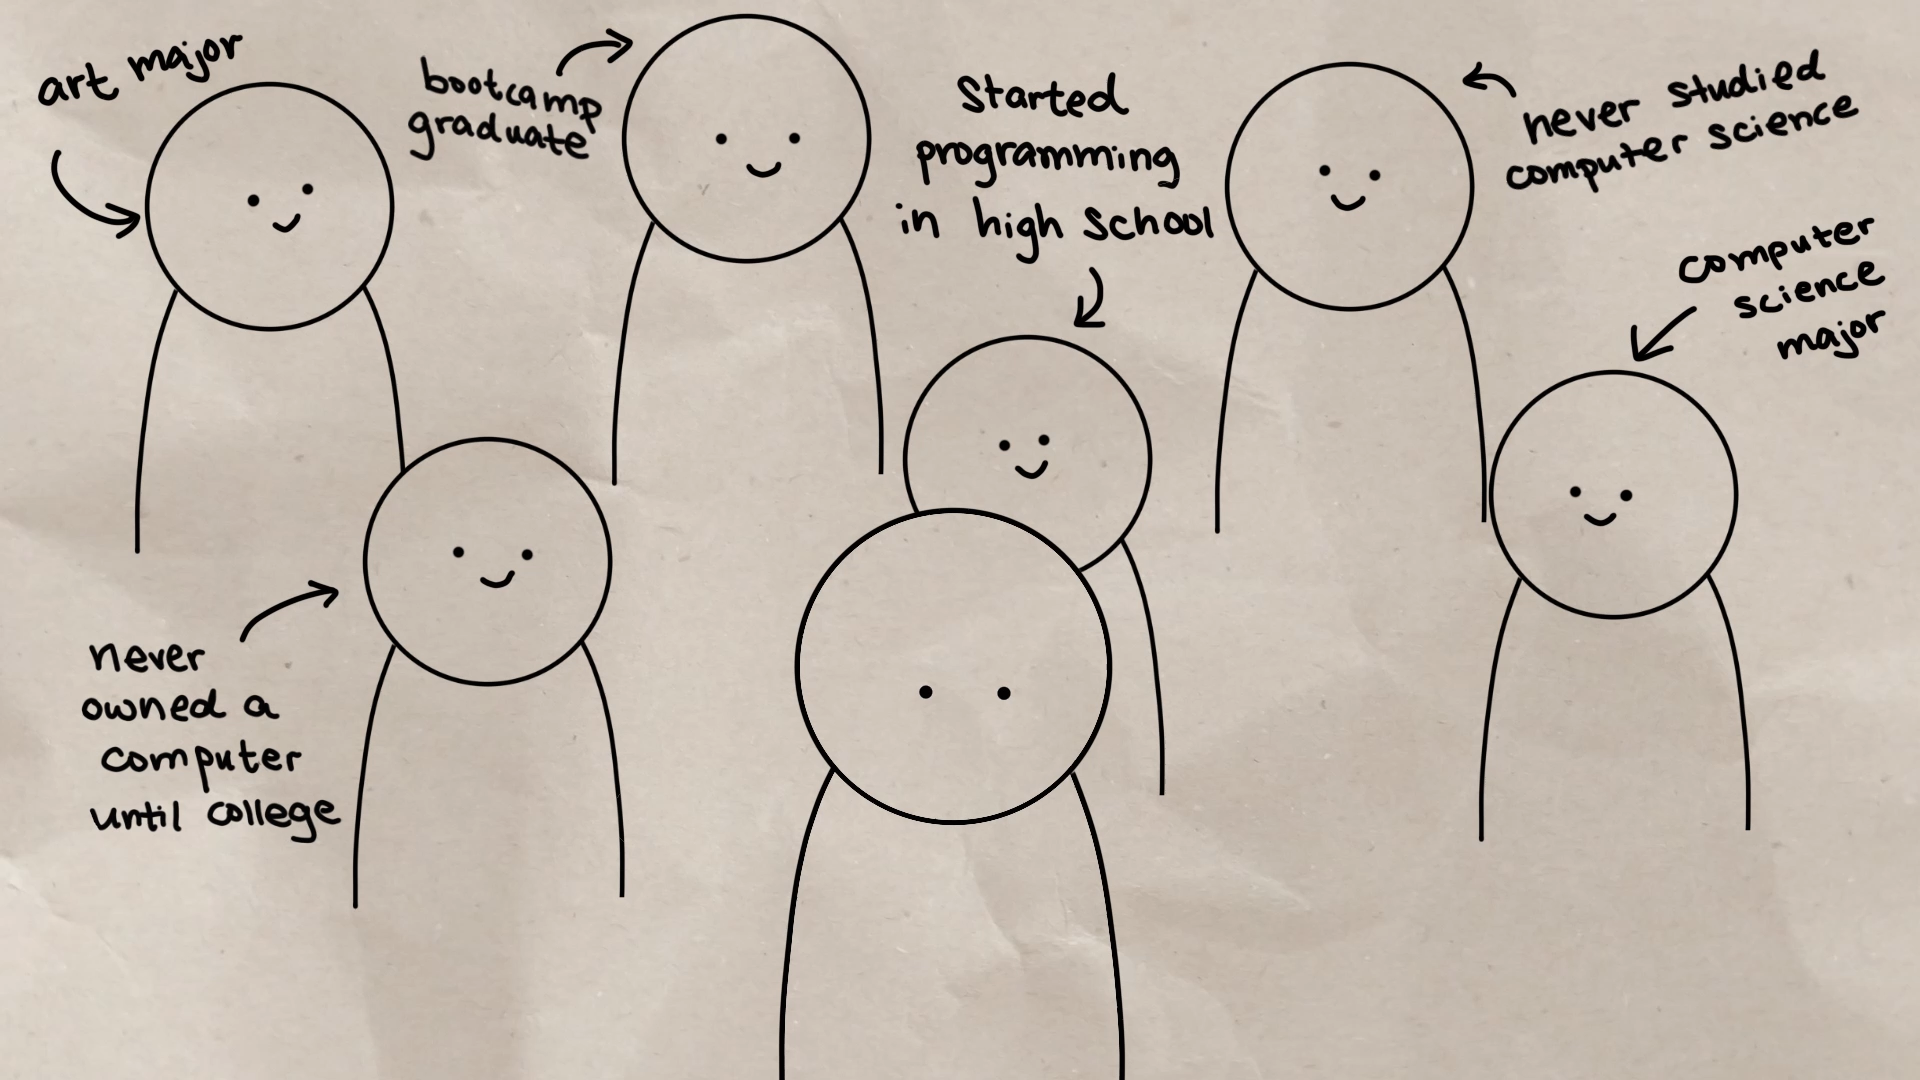 art major
bootcamp
graduate
Started
programming
in high school
never studied
computer science
computer
science
major
never
owned a
computer
until college